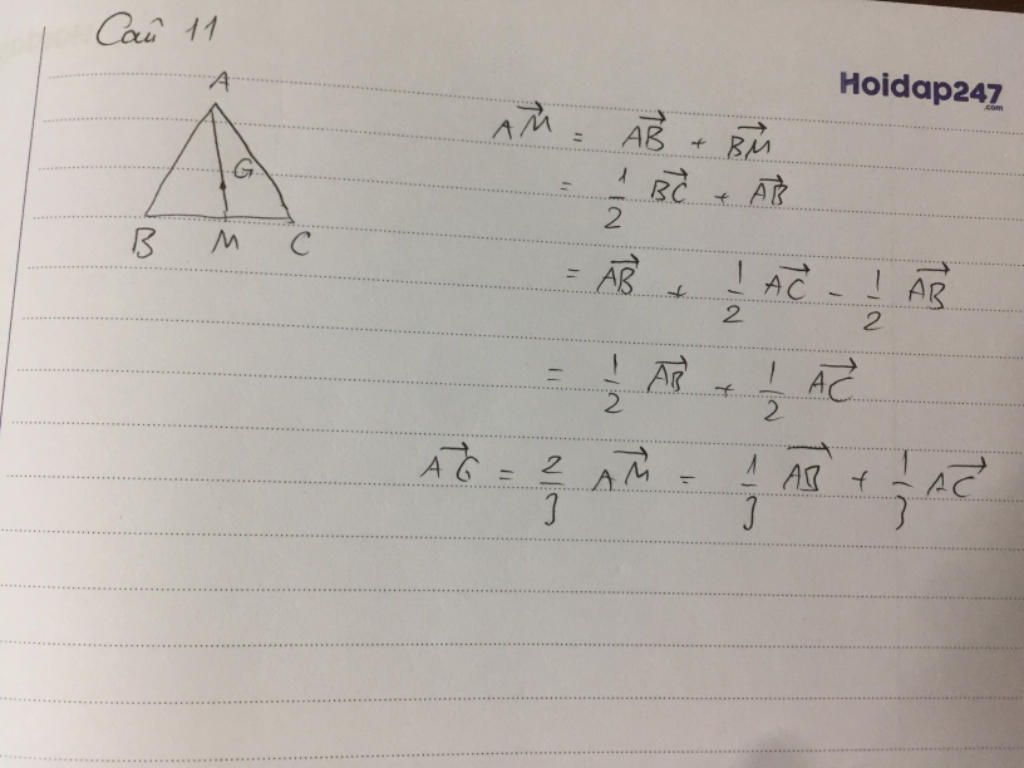 Câu 11
Hoidap247
.com
A
G
B M C
$\overrightarrow{AM} = \overrightarrow{AB} + \overrightarrow{BM}$
$= \frac{1}{2} \overrightarrow{BC} + \overrightarrow{AB}$
$= \overrightarrow{AB} + \frac{1}{2} \overrightarrow{AC} - \frac{1}{2} \overrightarrow{AB}$
$= \frac{1}{2} \overrightarrow{AB} + \frac{1}{2} \overrightarrow{AC}$
$\overrightarrow{AG} = \frac{2}{3} \overrightarrow{AM} = \frac{1}{3} \overrightarrow{AB} + \frac{1}{3} \overrightarrow{AC}$